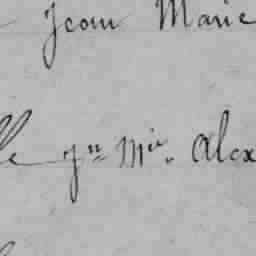 Jean Marie
Jn Mie. Alex